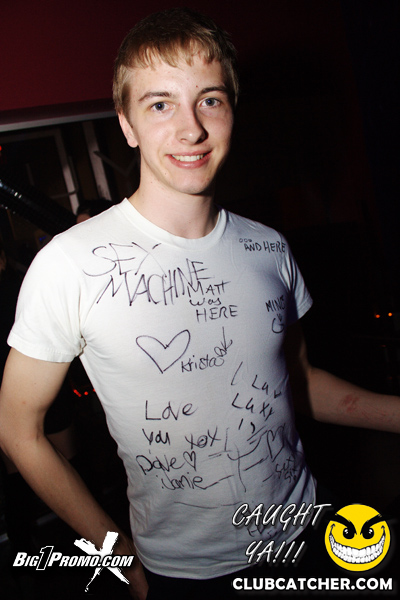 ...AND HERE
SEX
MACHINE
MATT
was
HERE
Krista
Love
You xox
Dave
Jamie
CAUGHT
YA!!!
BIG1PROMO.COM
CLUBCATCHER.COM